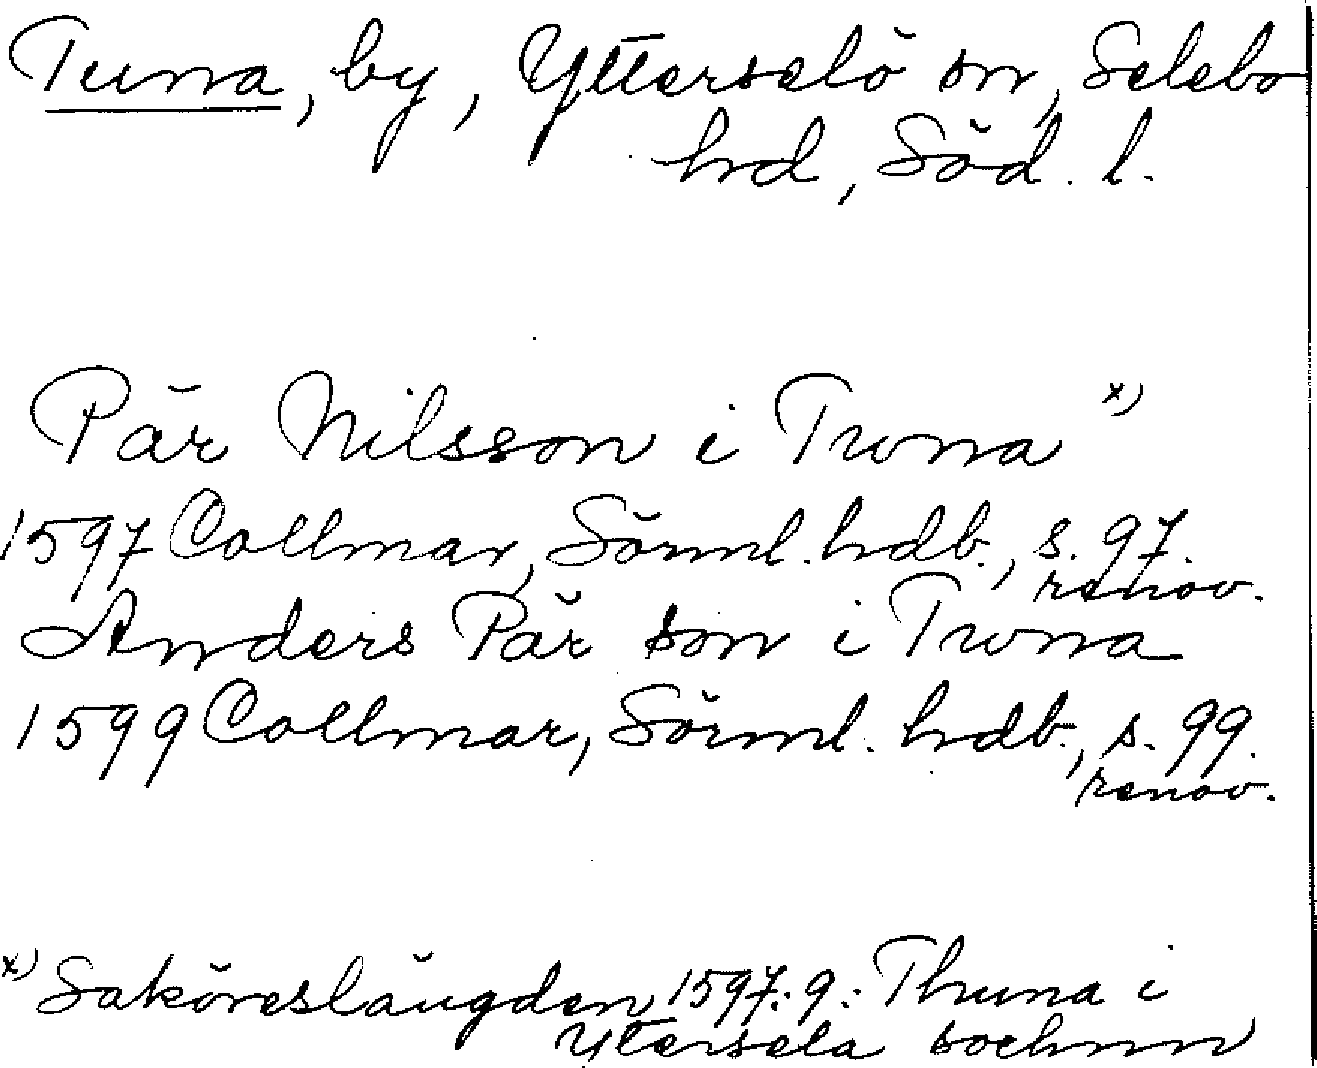 Tuna, by, Ytterselö sn, Selebo
hd, Söd. l.
Pär Nilsson i Twna x)
1597 Collmar, Sörml. hdb., s. 97.
renov.
Anders Pär son i Twna
1599 Collmar, Sörml. hdb., s. 99.
renov.
x) Saköreslängden 1597: 9: Thuna i
Ytersela sochnn